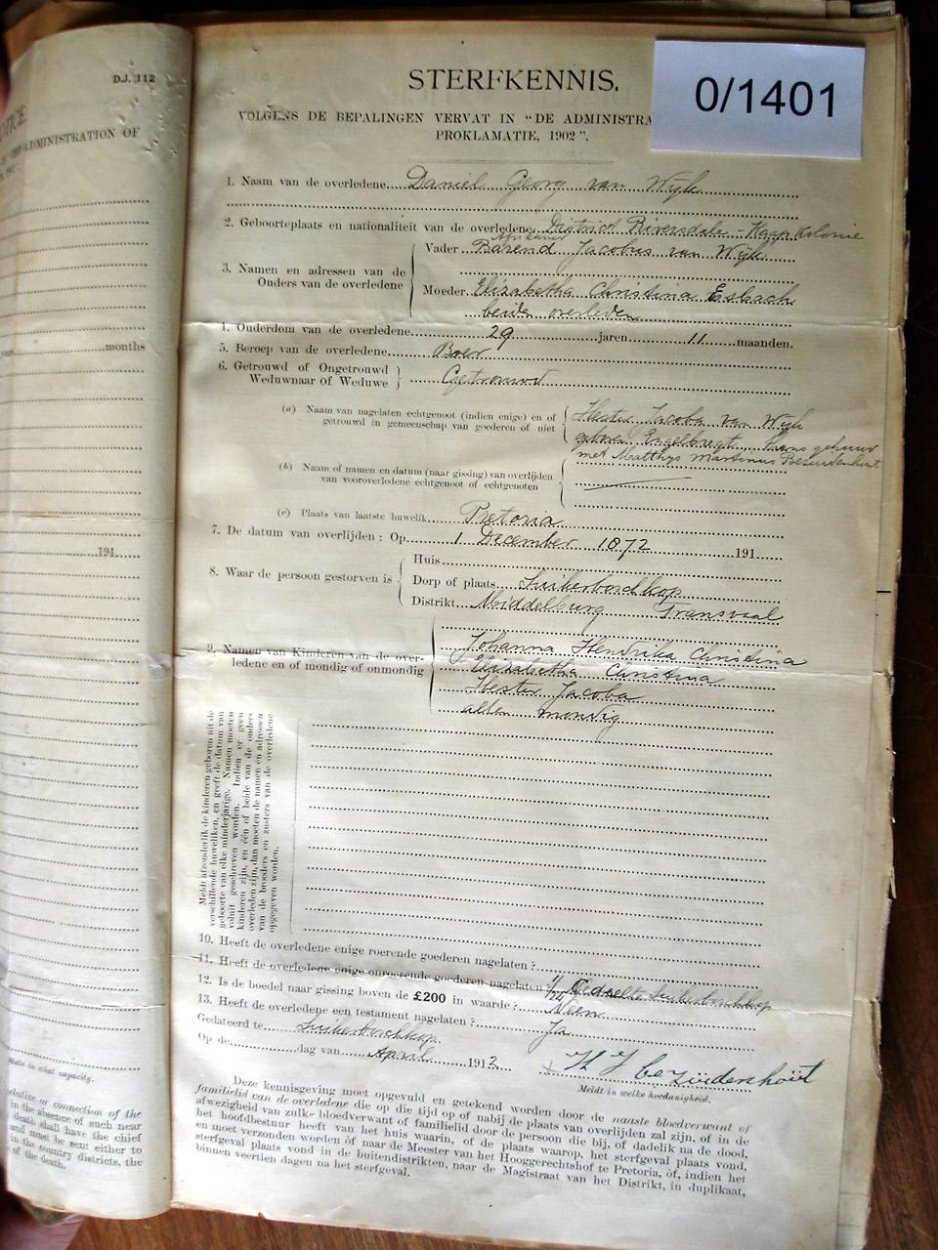 D.J. 112
OTICE
ADMINISTRATION OF
months
191
state in what capacity.
relative or connection of the
in the absence of such near
death shall have the chief
and must be sent either to
in the country districts, the
of the death.
0/1401
STERFKENNIS,
VOLGENS DE BEPALINGEN VERVAT IN "DE ADMINISTRA
PROKLAMATIE, 1902".
1. Naam van de overledene Daniel Georg van Wijk
2. Geboorteplaats en nationaliteit van de overledene District Riversdale - Kaapkolonie
Afrikaner
3. Namen en adressen van de Ouders van de overledene
Vader Barend Jacobus van Wijk
Moeder Elizabetha Christina Esbach
beiden overleden
4. Ouderdom van de overledene 29 jaren 11 maanden.
5. Beroep van de overledene Boer
6. Getrouwd of Ongetrouwd
Weduwnaar of Weduwe
Getrouwd
(a) Naam van nagelaten echtgenoot (indien enige) en of
getrouwd in gemeenschap van goederen of niet
Hester Jacoba van Wijk
geboren Engelbregt thans gehuwd
met Matthys Martinus Bezuidenhout
(b) Naam of namen en datum (naar gissing) van overlijden
van vooroverledene echtgenoot of echtgenoten
(c) Plaats van laatste huwelik Pretoria
7. De datum van overlijden: Op 1 December 1872 191
8. Waar de persoon gestorven is
Huis
Dorp of plaats Suikerboschkop
Distrikt Middelburg Transvaal
9. Namen van Kinderen van de over-
ledene en of mondig of onmondig
Johanna Hendrika Christina
Elizabetha Christina
Hester Jacoba
allen mondig
Meldt afzonderlik de kinderen geboren uit de
verschillende huweliken, en geeft de datum van
geboorte van elke minderjarige. Namen moeten
voluit geschreven worden. Indien er geen
kinderen zijn, en één of beide van de ouders
overleden zijn, dan moeten de namen en adressen
van de broeders en zusters van de overledene
opgegeven worden.
10. Heeft de overledene enige roerende goederen nagelaten?
11. Heeft de overledene enige onroerende goederen nagelaten? Gedeelte Suikerboschkop
12. Is de boedel naar gissing boven de £200 in waarde? Neen
13. Heeft de overledene een testament nagelaten? Ja
Gedateerd te Suikerboschkop
Op de dag van April 1912
H J bezuidenhout
Meldt in welke hoedanigheid.
Deze kennisgeving moet opgevuld en getekend worden door de naaste bloedverwant of
familielid van de overledene die op die tijd op of nabij de plaats van overlijden zal zijn, of in de
afwezigheid van zulke bloedverwant of familielid door de persoon die bij, of dadelik na de dood,
het hoofdbestuur heeft van het huis waarin, of de plaats waarop, het sterfgeval plaats vond,
en moet verzonden worden òf naar de Meester van het Hooggerechtshof te Pretoria, òf, indien het
sterfgeval plaats vond in de buitendistrikten, naar de Magistraat van het Distrikt, in duplikaat,
binnen veertien dagen na het sterfgeval.